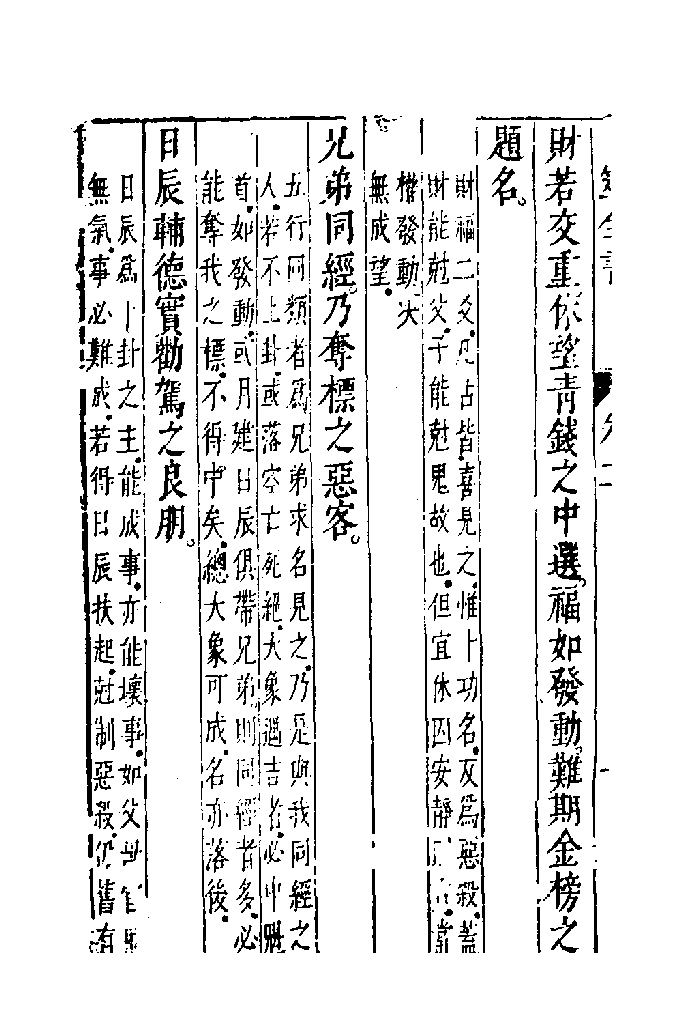 財若交重休望青錢之中選。福如發動。難期金榜之
題名。
財福二爻。凡占皆喜見之。惟卜功名。反為惡殺。蓋
財能尅父。子能尅鬼故也。但宜休囚安靜
權發動。决
無成望。
兄弟同經。乃奪標之惡客。
五行同類者為兄弟。求名見之。乃是與我同經之
人。若不上卦。或落空亡死絕。大象遇吉者。必中魁
首。如發動。或月建日辰俱帶兄弟。則同經者多。必
能奪我之標。不得中矣。總大象可成。名亦落後。
日辰輔德實勸駕之良朋。
日辰為卜卦之主。能成事。亦能壞事。如父母官
無氣。事必難成。若得日辰扶起。尅制惡殺。仍舊有